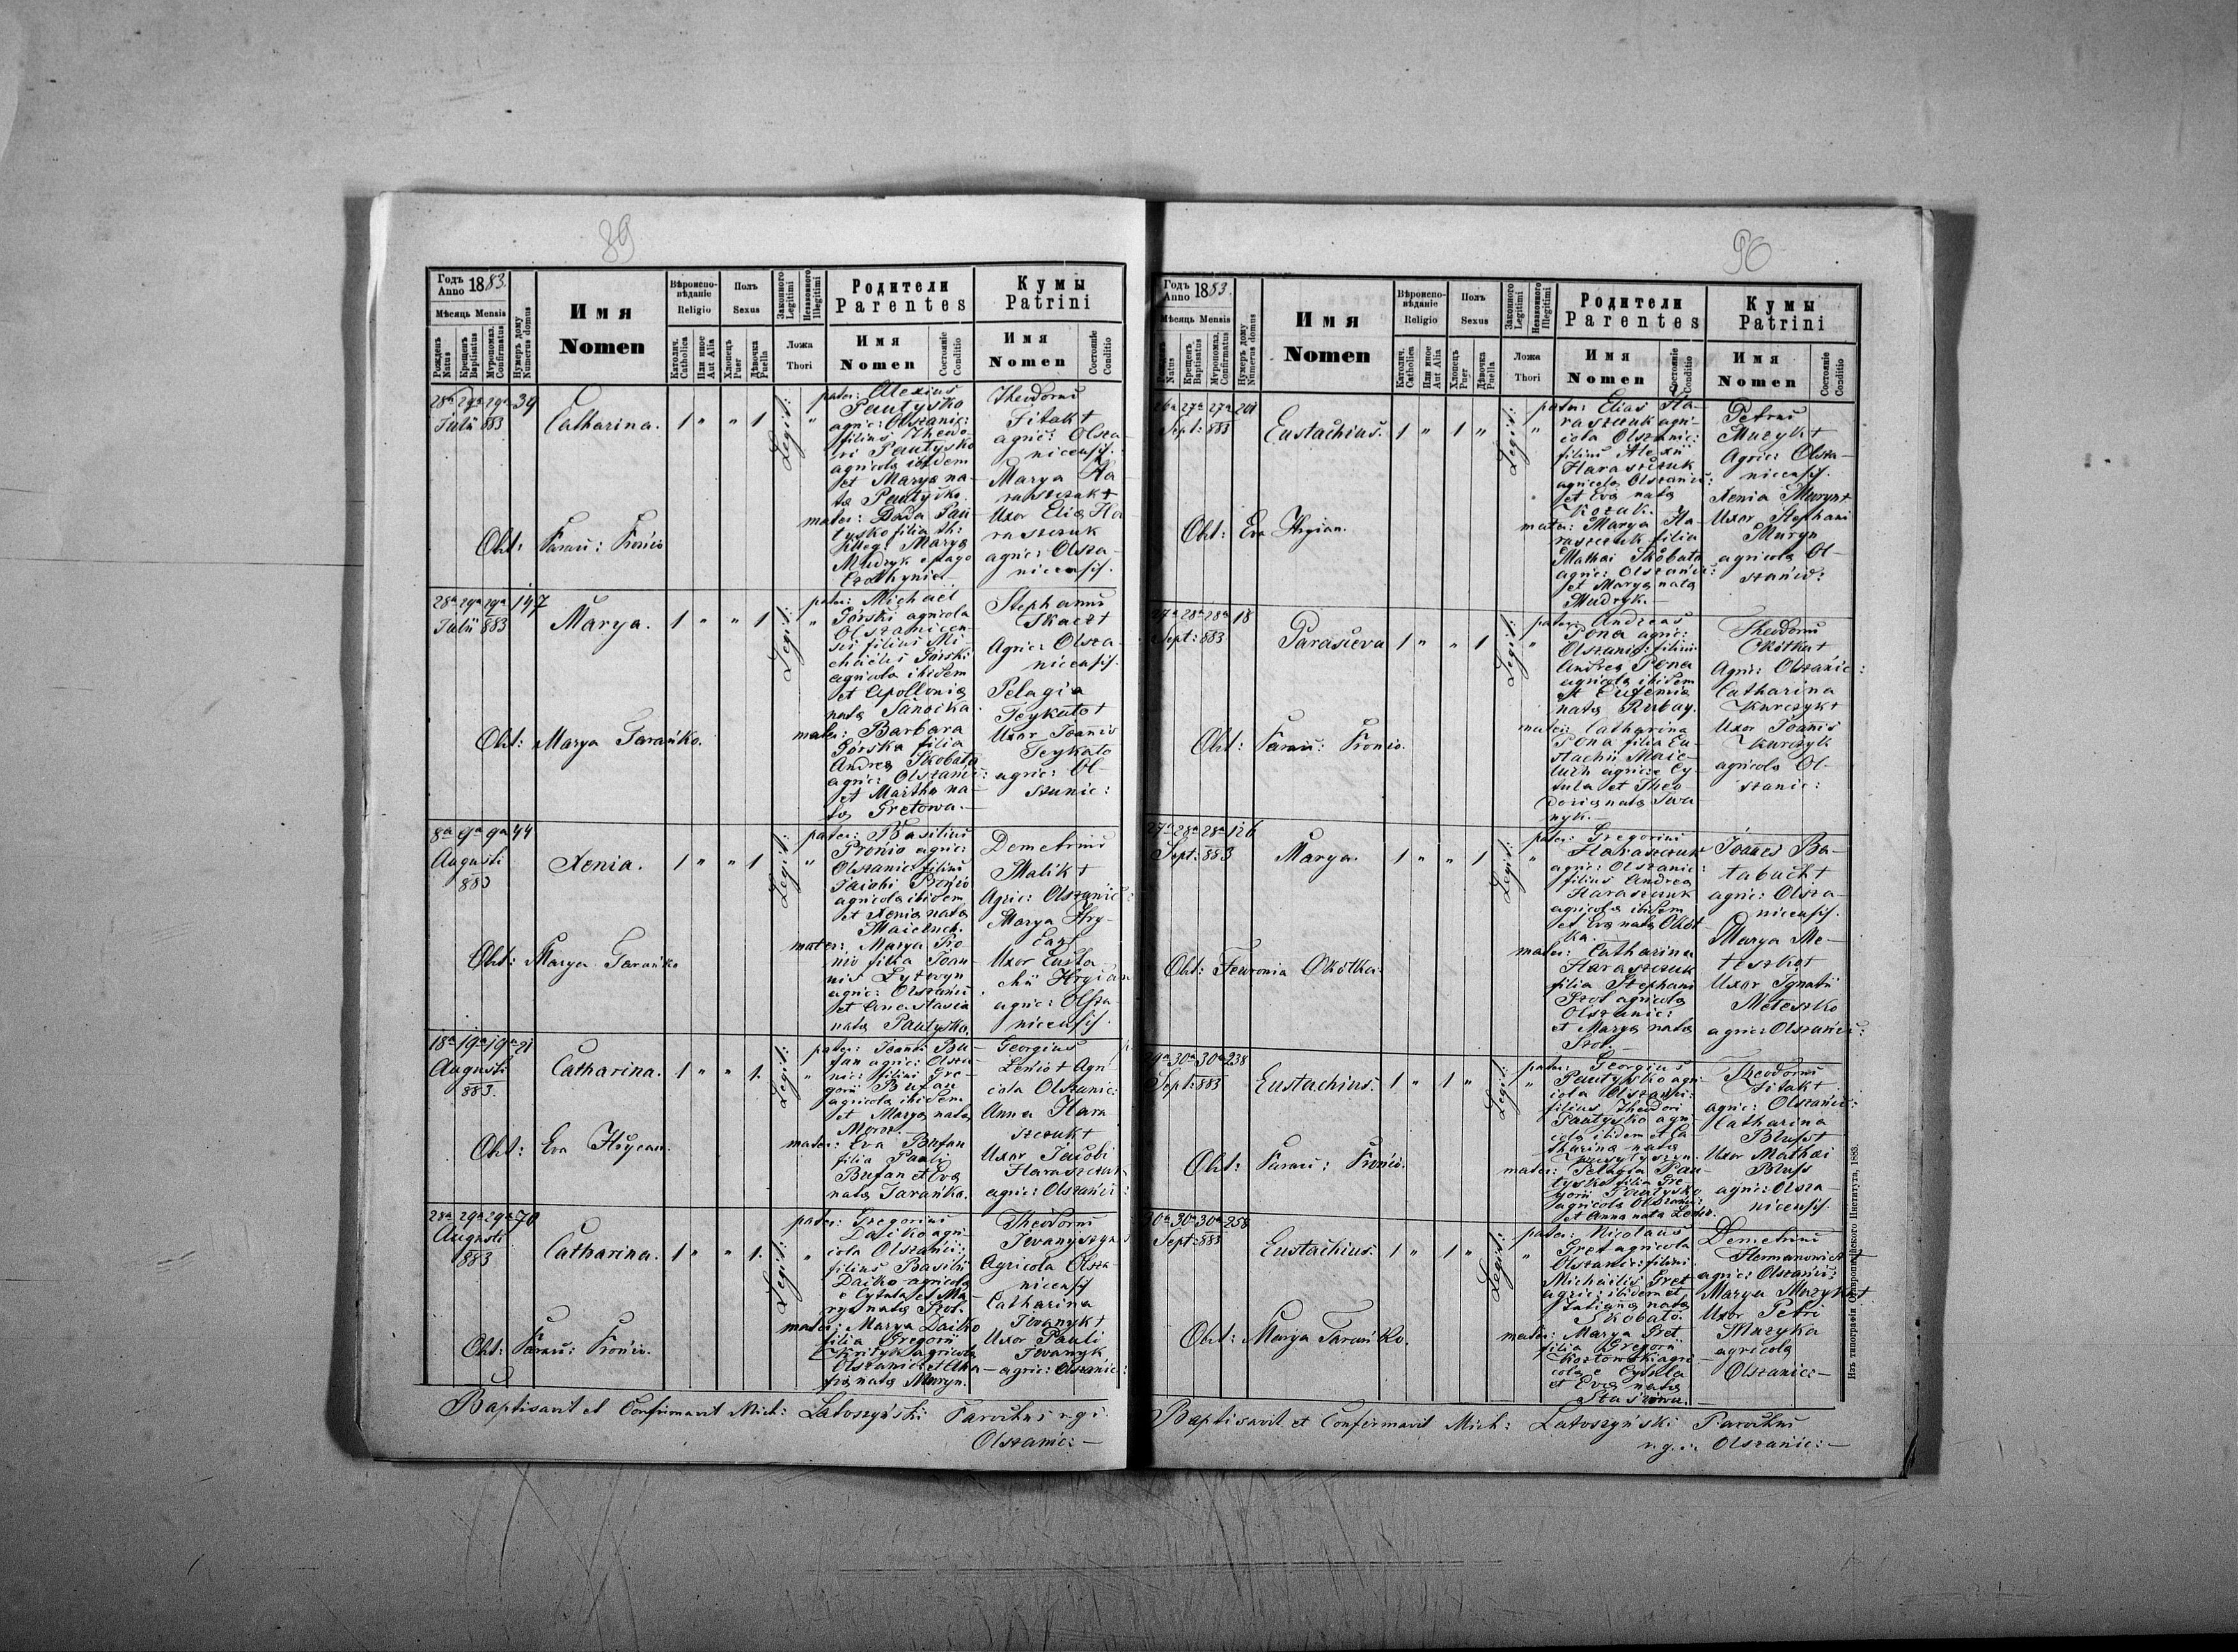 89
Годъ Anno 1883.
Мѣсяць Mensis
Рожденъ Natus
Крещенъ Baptisatus
Мѵропомаз. Confirmatus
Нумеръ дому Numerus domus
Имя
Nomen
Вѣроиспо-
вѣданіе
Religio
Католич. Catholica
Или иное Aut Alia
Полъ
Sexus
Хлопець Puer
Дѣвочка Puella
Законного Legitimi
Незаконного Illegitimi
Ложа
Thori
Родители
Parentes
Имя
Nomen
Состояніе Conditio
Кумы
Patrini
Имя
Nomen
Состояніе Conditio
28a 29a 29a 39
Julii 883
Catharina. 1 " " 1 Legit: "
pater: Alexius
Pautysko
agric: Olszanic:
filius Theodo-
ri Pautysko
agricola ibidem
et Marya na-
ta Pautysko.
mater: Pau-
tysko filia
illeg: Marya
Mudryk e pago
Theodorus
Sitak +
agric: Olsza-
nicensis.
Marya Ha-
raszczuk +
Uxor Elia Ha-
raszczuk
agric: Olsza-
nicensis.
Obst: Fronio
28a 29a 29a 147
Julii 883
Marya. 1 " " 1 Legit: "
pater: Michael
Górski agricola
Olszanicen-
sis filius Mi-
chaelis Górski
agricola ibidem
et Apollonia
nata Sanocka.
mater: Barbara
Górska filia
Andrea Skobato
agric: Olszanic:
et Martha na-
ta Gretowa.
Stephanus
Tkacz +
Agric: Olsza-
nicensis.
Pelagia
Teykato +
Uxor Joannis
Teykato
agric: Ol-
szanic:
Obst: Marya Tarańko.
8a 9a 9a 44
Augusti
883
Xenia. 1 " " 1 Legit: "
pater: Basilius
Pronio agric:
Olszanic: filius
Jacobi Pronio
agricola ibidem
et Xenia nata
Maicluch.
mater: Marya Pro-
nio filia Joan-
nis Lytwyn
agric: Olszanic
et Anastasia
nata Pautysko.
Demetrius
Malik +
Agric: Olszanic:
Marya Hry-
can +
Uxor Eusta-
chii Hrycan
agric: Olsza-
nicensis.
Obst: Marya Tarańko
18a 19a 19a 21
Augusti
883.
Catharina. 1 " " 1. Legit: "
pater: Joannes Bu-
fan agric: Olsza-
nic: filius Gre-
gorii Bufan
agricola ibidem
et Marya nata
Moroz.
mater: Eva Bufan
filia Pauli
Bufan et Eva
nata Tarańko.
Georgius
Lenio + Agri-
cola Olszanic:
Anna Hara
szczuk +
Uxor Jacobi
Haraszczuk
agric: Olszanic:
Obst: Eva Hrycan.
28a 29a 29a 70
Augusti
883
Catharina. 1 " " 1. Legit: "
pater: Gregorius
Daiko agri-
cola Olszanic:
filius Basilii
Daiko agricola
e Cytula et Ma-
rya nata Szot.
mater: Marya Daiko
filia Gregorii
Krityk agricola
Olszanic: et
nata Muryn.
Theodorus
Iwanyszyn
Agricola Olsza
nicensis
Catharina
Iwanyk +
Uxor Pauli
Iwanyk
agric: Olszanic:
Obst: Fronio.
Baptisavit et Confirmavit Mich: Latoszyński Parochus r.g.i.
Olszanic: —
90
Годъ Anno 1883.
Мѣсяць Mensis
Рожденъ Natus
Крещенъ Baptisatus
Мѵропомаз. Confirmatus
Нумеръ дому Numerus domus
Имя
Nomen
Вѣроиспо-
вѣданіе
Religio
Католич. Catholica
Или иное Aut Alia
Полъ
Sexus
Хлопець Puer
Дѣвочка Puella
Законного Legitimi
Незаконного Illegitimi
Ложа
Thori
Родители
Parentes
Имя
Nomen
Состояніе Conditio
Кумы
Patrini
Имя
Nomen
Состояніе Conditio
26a 27a 27a 201
Sept: 883
Eustachius. 1 " 1 " Legit: "
pater: Elias Ha-
raszczuk agri-
cola Olszanic:
filius Alexii
Haraszczuk
agricola Olszanic:
et Eva nata
Kozak.
mater: Marya Ha-
raszczuk filia
Mathai Skobato
agric: Olszanic:
et Marya nata
Mudryk.
Petrus
Muzyk +
Agric: Olsza-
nicensis.
Xenia Muryn +
Uxor Stephani
Muryn
agricola Ol-
szanic:
Obst: Eva
27a 28a 28a 18
Sept: 883
Parasceva 1 " " 1 Legit: "
pater: Andreas
Pona agric:
Olszanic: filius
Andrea Pona
agricola ibidem
et Eugenia
nata Rubay.
mater: Catharina
Pona filia Eu-
stachii Maic-
luch agric: Cy-
tula et Theo
doria nata Iwa
nyk.
Theodorus
Okotka +
Agric: Olszanic:
Catharina
Kurczyk +
Uxor Joannis
Kurczyk
agricola Ol-
szanic:
Obst: Fronio.
27a 28a 28a 126
Sept: 883
Marya. 1 " " 1 Legit: "
pater: Gregorius
Haraszczuk
agric: Olszanic:
filius Andrea
Haraszczuk
agricola ibidem
et Eva nata Okot
ka.
mater: Catharina
Haraszczuk
filia Stephani
Szot agricola
Olszanic:
et Marya nata
Szot.
Joannes Ba-
tabuch +
agric: Olsza-
nicensis.
Marya Me-
teszko +
Uxor Ignatii
Meteszko
agric: Olszanic:
Obst: Fewronia Okotka.
29a 30a 30a 238
Sept: 883
Eustachius. 1 " 1 " Legit: "
pater: Georgius
Pautysko agri-
cola Olszanic:
filius Theodori
Pautysko agri-
cola ibidem et Ca-
tharina nata
mater: Pelagia Pau-
tysko filia Gre-
gorii Pautysko
agricola Olszanic:
et Anna nata
Theodorus
Sitak +
agric: Olszanic:
Catharina
Bluss +
Uxor Mathai
Bluss
agric: Olsza-
nicensis.
Obst: Fronio.
30a 30a 30a 258
Sept: 883
Eustachius. 1 " 1 " Legit: "
pater: Nicolaus
Gret agricola
Olszanic: filius
Michaelis Gret
agric: ibidem et
Tatianna nata
Skobato.
mater: Marya Gret
filia Gregorii
Koztowski agri
cola e Cytula
et Eva nata
Demetrius
Hermanowicz +
agric: Olszanic:
Marya Muzyka +
Uxor Petri
Muzyka
agricola
Olszanic: —
Obst: Marya Tarańko.
Baptisavit et Confirmavit Mich: Latoszyński Parochus
r.g.i. Olszanic: —
Изъ типографіи Ставропигійского Института, 1883.